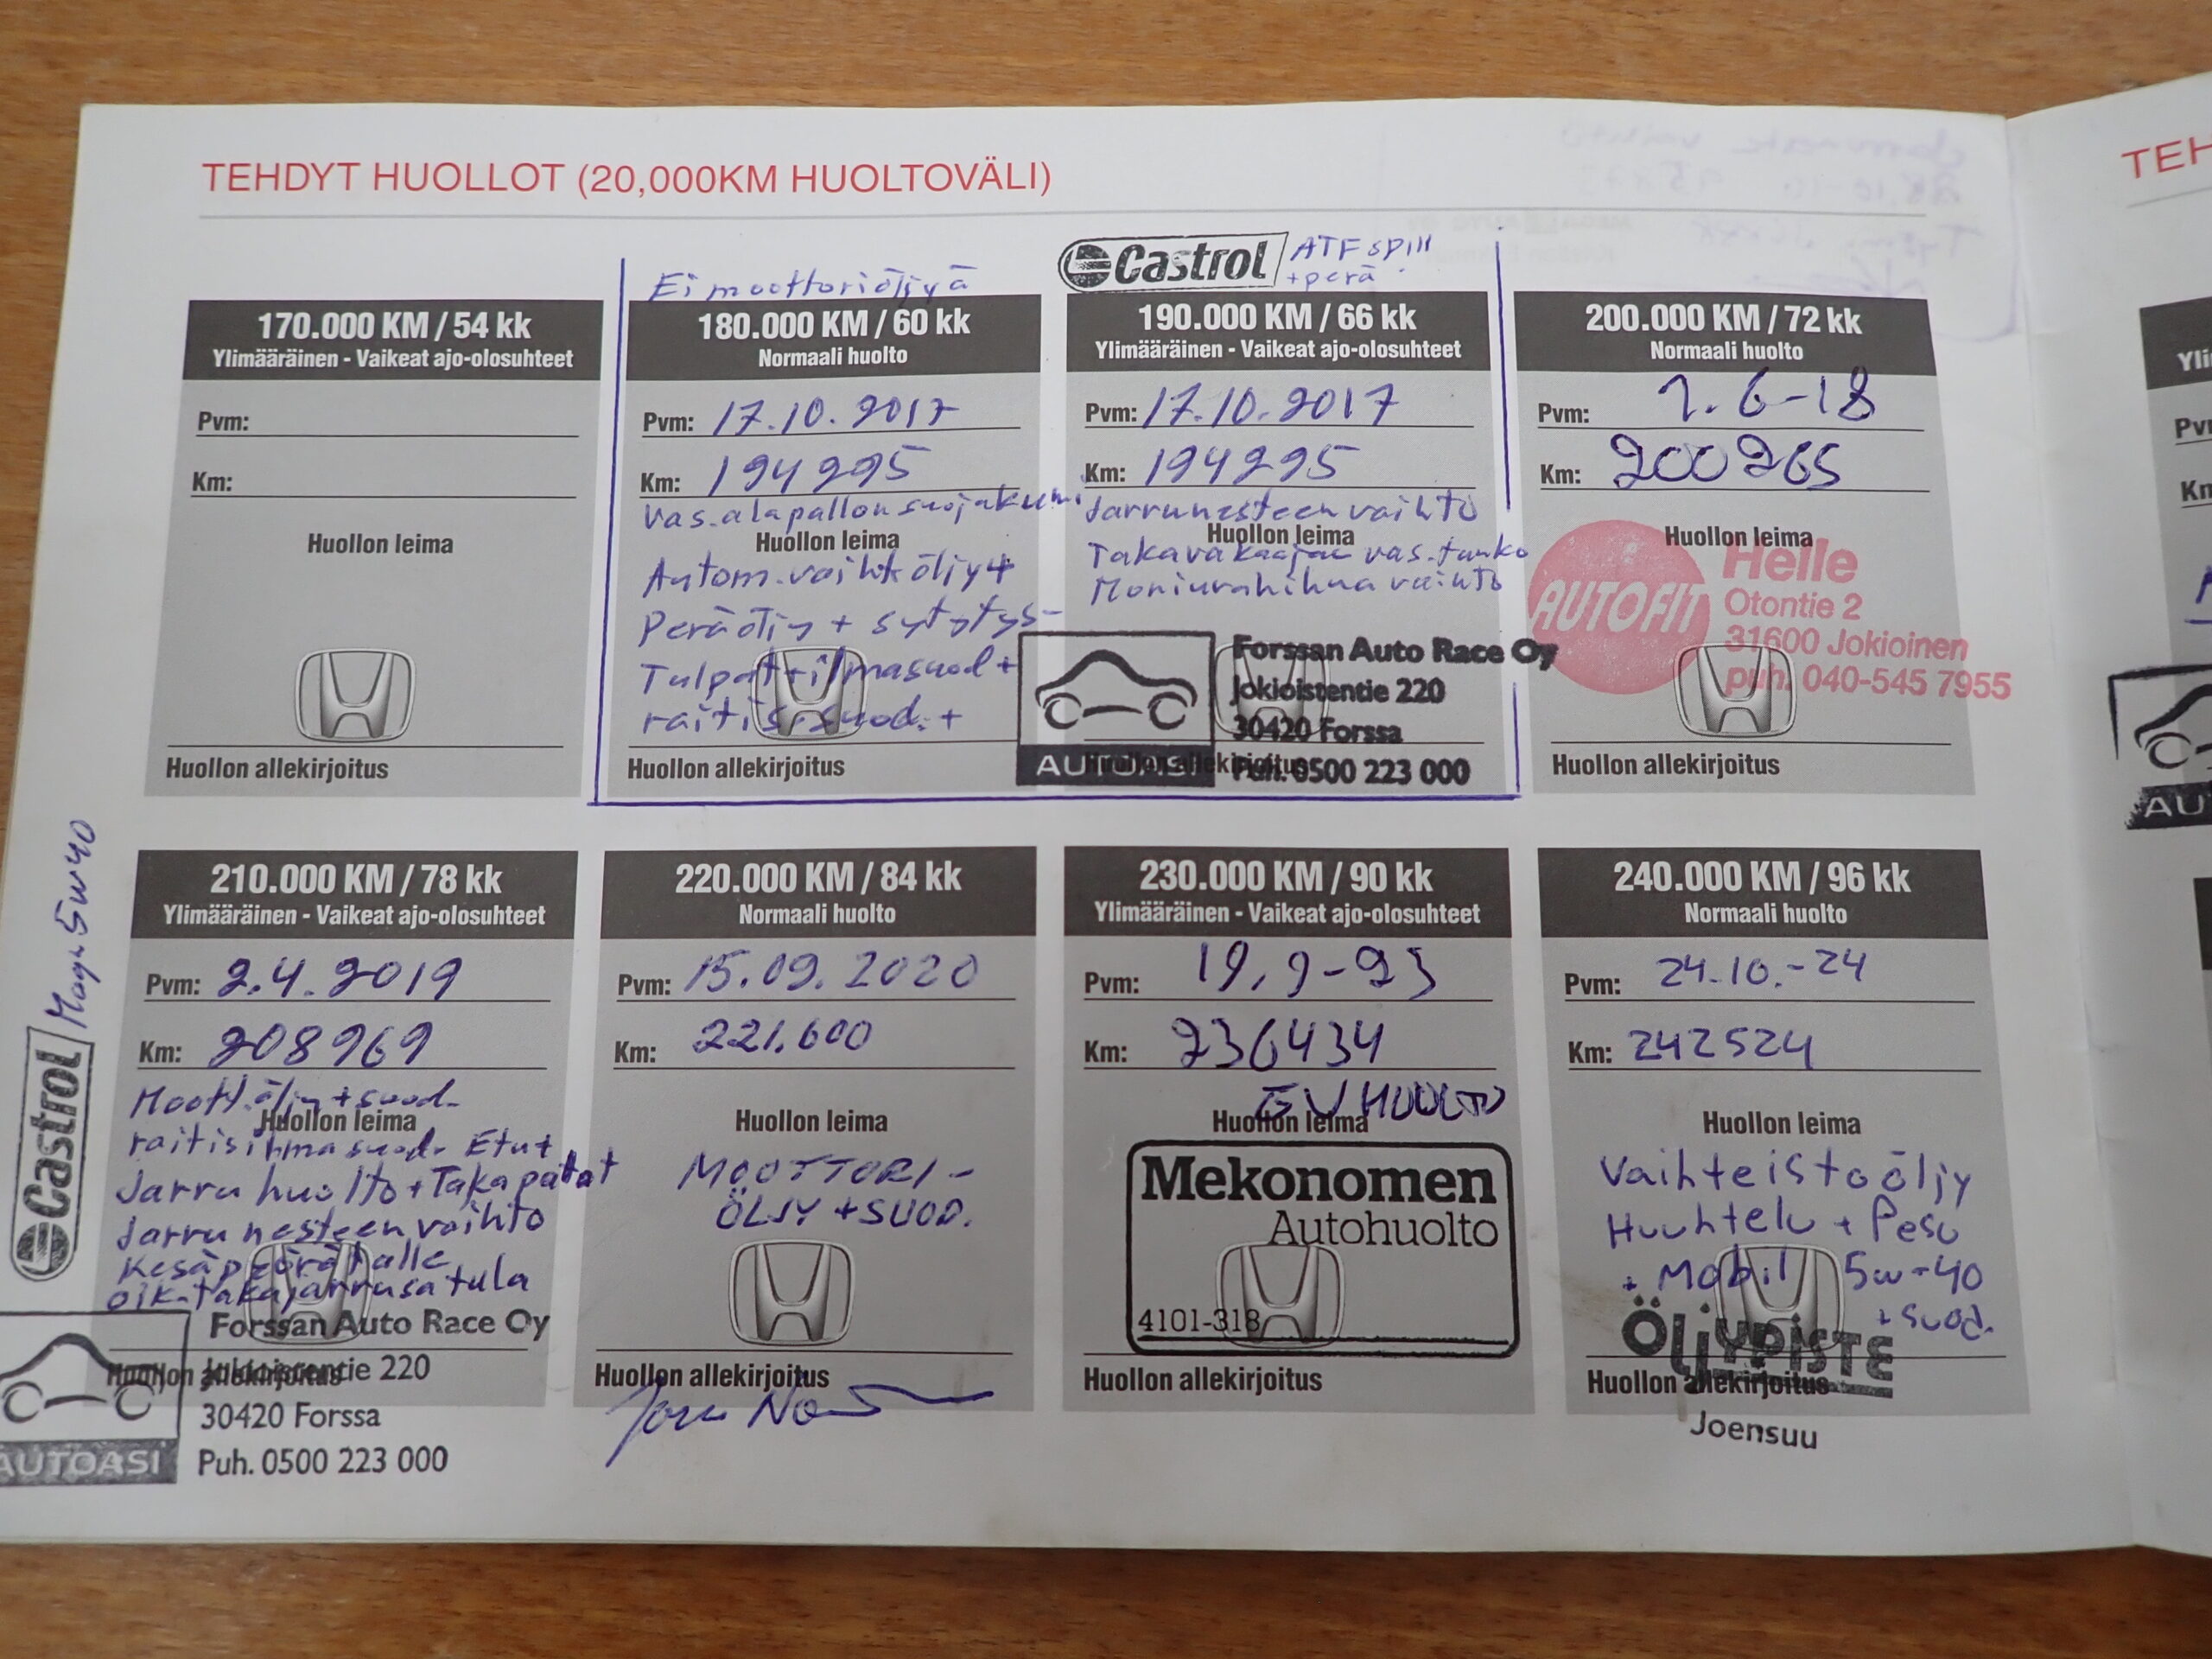 TEHDYT HUOLLOT (20,000KM HUOLTOVÄLI)
170.000 KM / 54 kk
Ylimääräinen - Vaikeat ajo-olosuhteet
Pvm:
Km:
Huollon leima
Huollon allekirjoitus
Ei moottoriöljyä
180.000 KM / 60 kk
Normaali huolto
Pvm: 17.10.2017
Km: 194295
Vas. alapallon suojakumi
Huollon leima
Autom. vaiht öljy +
Peräöljy + sytytys-
Tulpat + ilmasuod +
raitis. suod. +
Huollon allekirjoitus
Castrol ATF
+ perä
190.000 KM / 66 kk
Ylimääräinen - Vaikeat ajo-olosuhteet
Pvm: 17.10.2017
Km: 194295
Jarrunesteen vaihto
Huollon leima
Takavakaajan vas. tanko
Moniurahihna vaihto
AUTOASI
Forssan Auto Race Oy
Jokioistentie 220
30420 Forssa
Puh. 0500 223 000
Huollon allekirjoitus
200.000 KM / 72 kk
Normaali huolto
Pvm: 1.6-18
Km: 200265
Huollon leima
AUTOFIT
Helle
Otontie 2
31600 Jokioinen
puh. 040-545 7955
Huollon allekirjoitus
Castrol Magn 5W40
210.000 KM / 78 kk
Ylimääräinen - Vaikeat ajo-olosuhteet
Pvm: 2.4.2019
Km: 208969
Moott. öljy + suod-
Huollon leima
raitisilmasuod- Etu +
Jarru huolto + Takapalat
Jarru nesteen vaihto
Kesäpyörät alle
oik-takajarrusatula
Forssan Auto Race Oy
Jokioistentie 220
30420 Forssa
Puh. 0500 223 000
AUTOASI
Huollon allekirjoitus
220.000 KM / 84 kk
Normaali huolto
Pvm: 15.09.2020
Km: 221.600
Huollon leima
MOOTTORI-
ÖLJY + SUOD.
Huollon allekirjoitus
230.000 KM / 90 kk
Ylimääräinen - Vaikeat ajo-olosuhteet
Pvm: 19,9-23
Km: 236434
HUOLTO
Huollon leima
Mekonomen
Autohuolto
4101-318
Huollon allekirjoitus
240.000 KM / 96 kk
Normaali huolto
Pvm: 24.10.-24
Km: 242524
Huollon leima
Vaihteistoöljy
Huuhtelu + Pesu
+ Mobil 5w-40
+ suod.
ÖLJYPISTE
Huollon allekirjoitus
Joensuu
TEH
Yli
AU